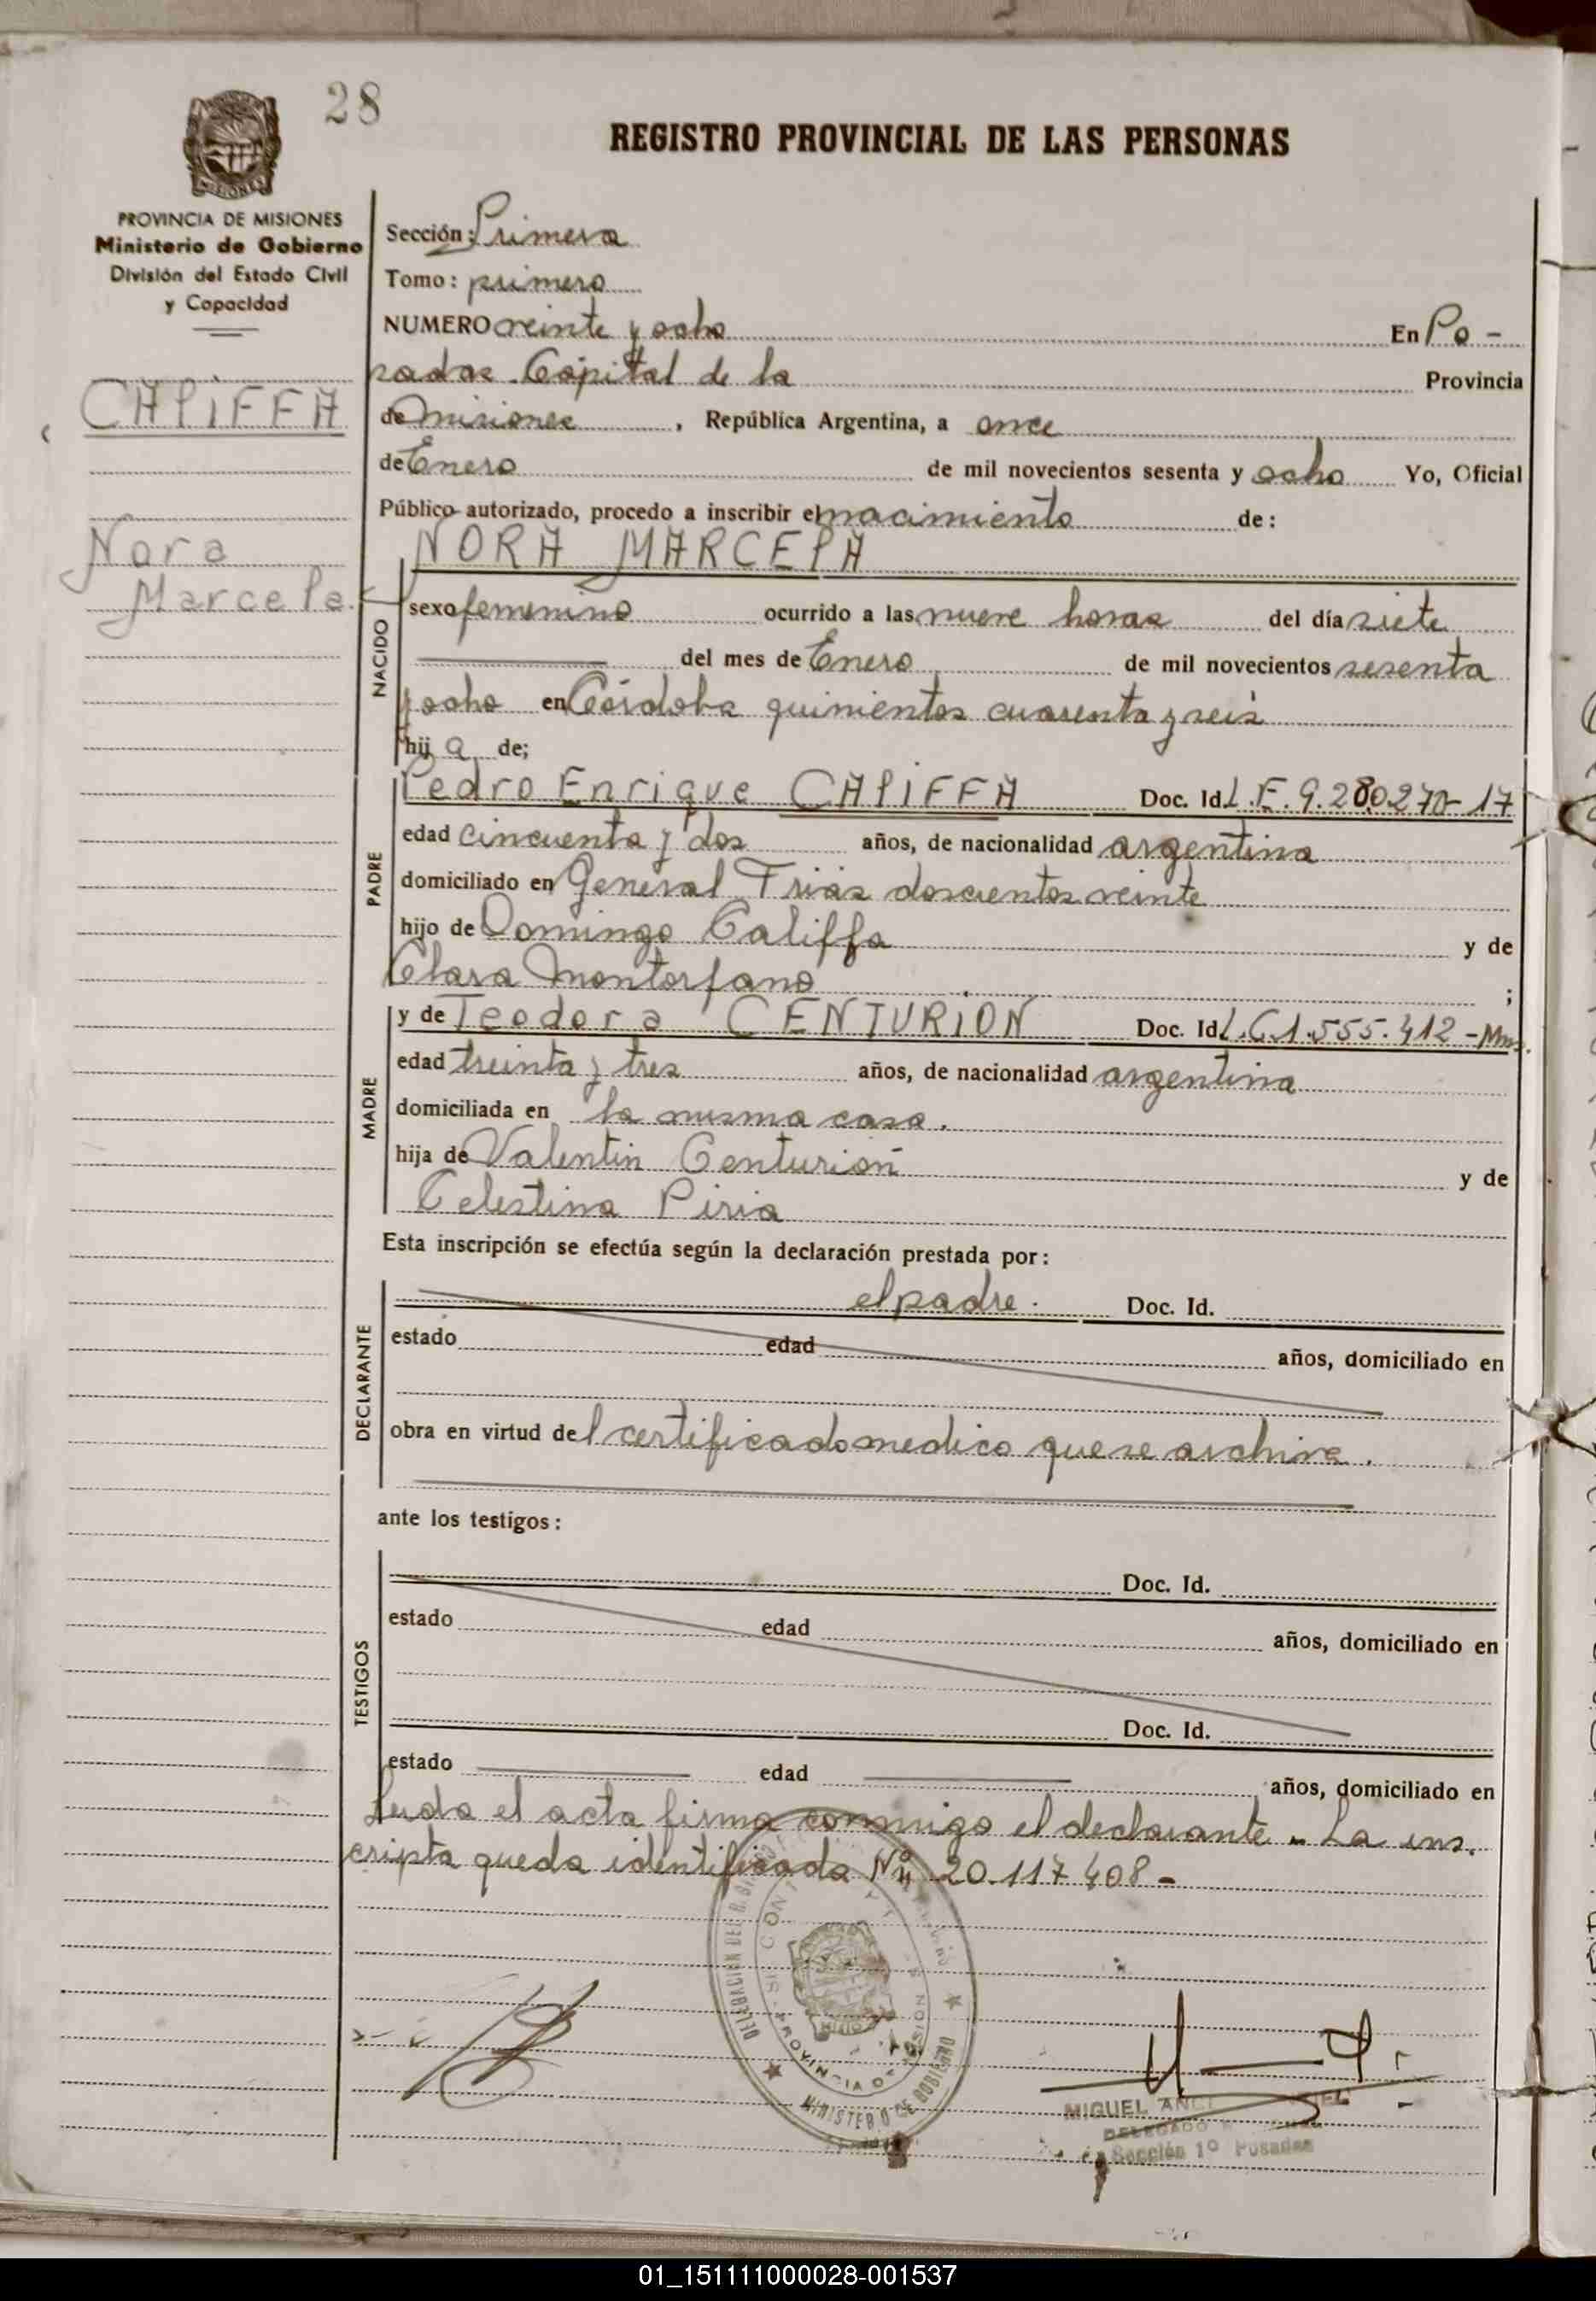 28
REGISTRO PROVINCIAL DE LAS PERSONAS
MISIONES
PROVINCIA DE MISIONES
Ministerio de Gobierno
División del Estado Civil
y Capacidad
CALIFFA
Nora
Marcela
Sección: Primera
Tomo: primero
NUMERO veinte y ocho En Po-
sadas Capital de la Provincia
de Misiones, República Argentina, a once
de Enero de mil novecientos sesenta y ocho Yo, Oficial
Público autorizado, procedo a inscribir el nacimiento de:
NORA MARCELA
NACIDO
sexo femenino ocurrido a las nueve horas del día siete
del mes de Enero de mil novecientos sesenta
y ocho en Córdoba quinientos cuarenta y seis
hij a de;
PADRE
Pedro Enrique CALIFFA Doc. Id. L.E. 9.280.270-17
edad cincuenta y dos años, de nacionalidad argentina
domiciliado en General Frias doscientos veinte
hijo de Domingo Califfa y de
Clara Montorfano ;
MADRE
y de Teodora CENTURION Doc. Id. L.C.1.555.412-Mns.
edad treinta y tres años, de nacionalidad argentina
domiciliada en la misma casa.
hija de Valentin Centurión y de
Celestina Piria
Esta inscripción se efectúa según la declaración prestada por:
DECLARANTE
el padre. Doc. Id.
estado edad años, domiciliado en
obra en virtud del certificado medico que se archiva.
ante los testigos:
TESTIGOS
Doc. Id.
estado edad años, domiciliado en
Doc. Id.
estado edad años, domiciliado en
Leida el acta firma conmigo el declarante. La ins-
cripta queda identificada Nº 20.117.408-
PROVINCIA DE MISIONES
MINISTERIO DE GOBIERNO
MIGUEL
DELEGADO
Sección 1º Posadas
01_151111000028-001537